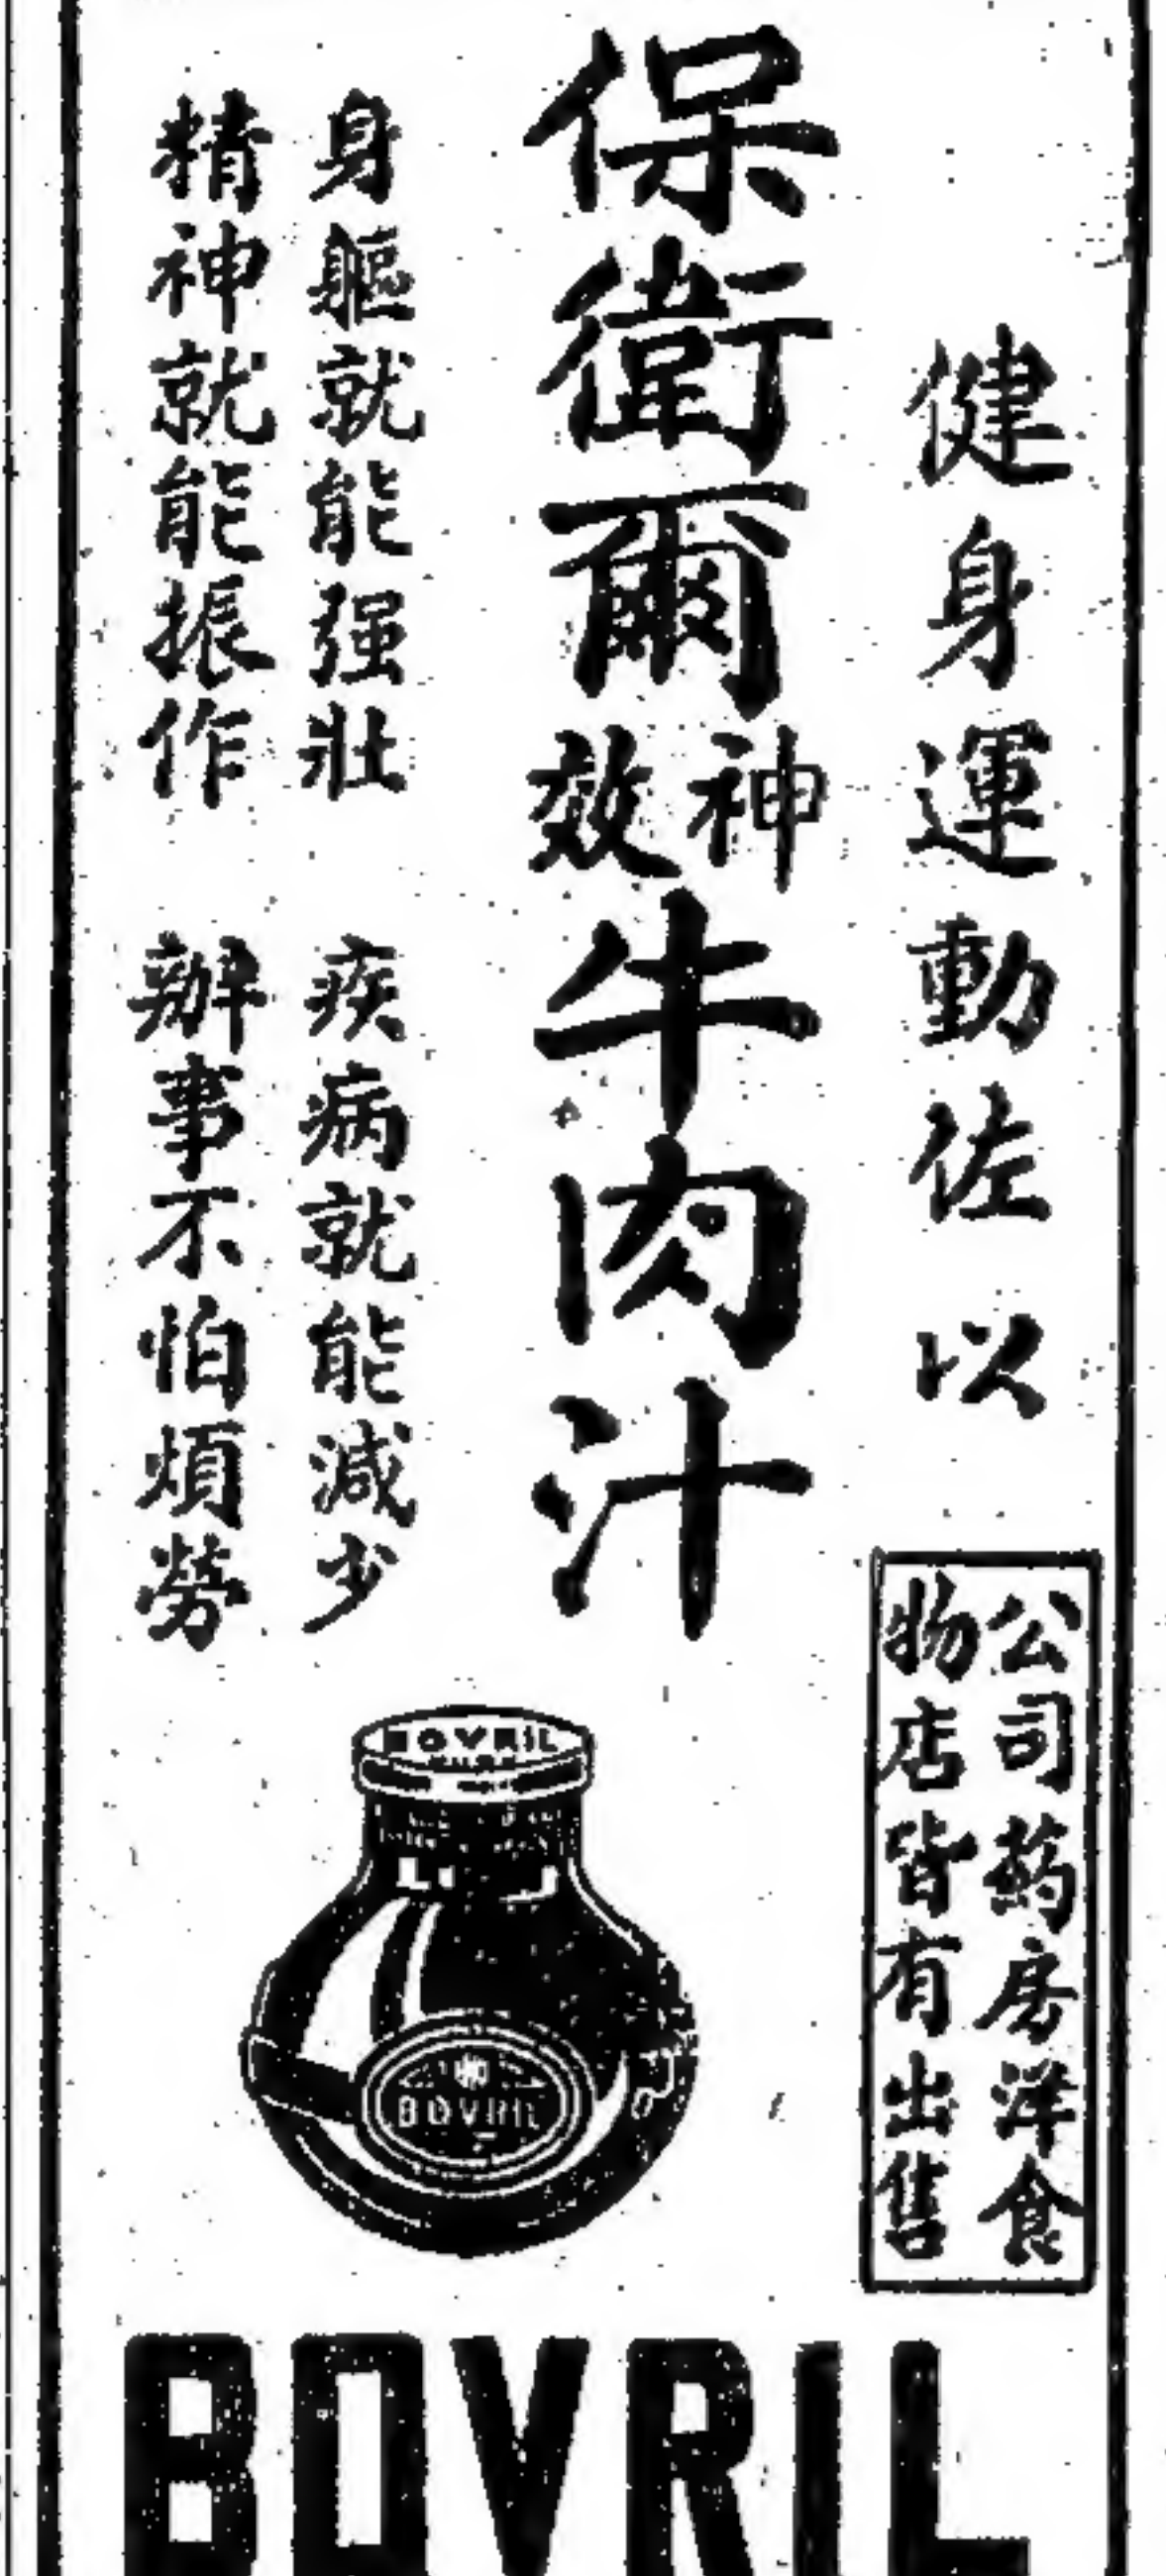 健身運動佐以
保衛爾神效牛肉汁
身軀就能强壯 疾病就能減少
精神就能振作 辦事不怕煩勞
公司葯房洋食
物店皆有出售
BOVRIL
BOVRIL
BOVRIL